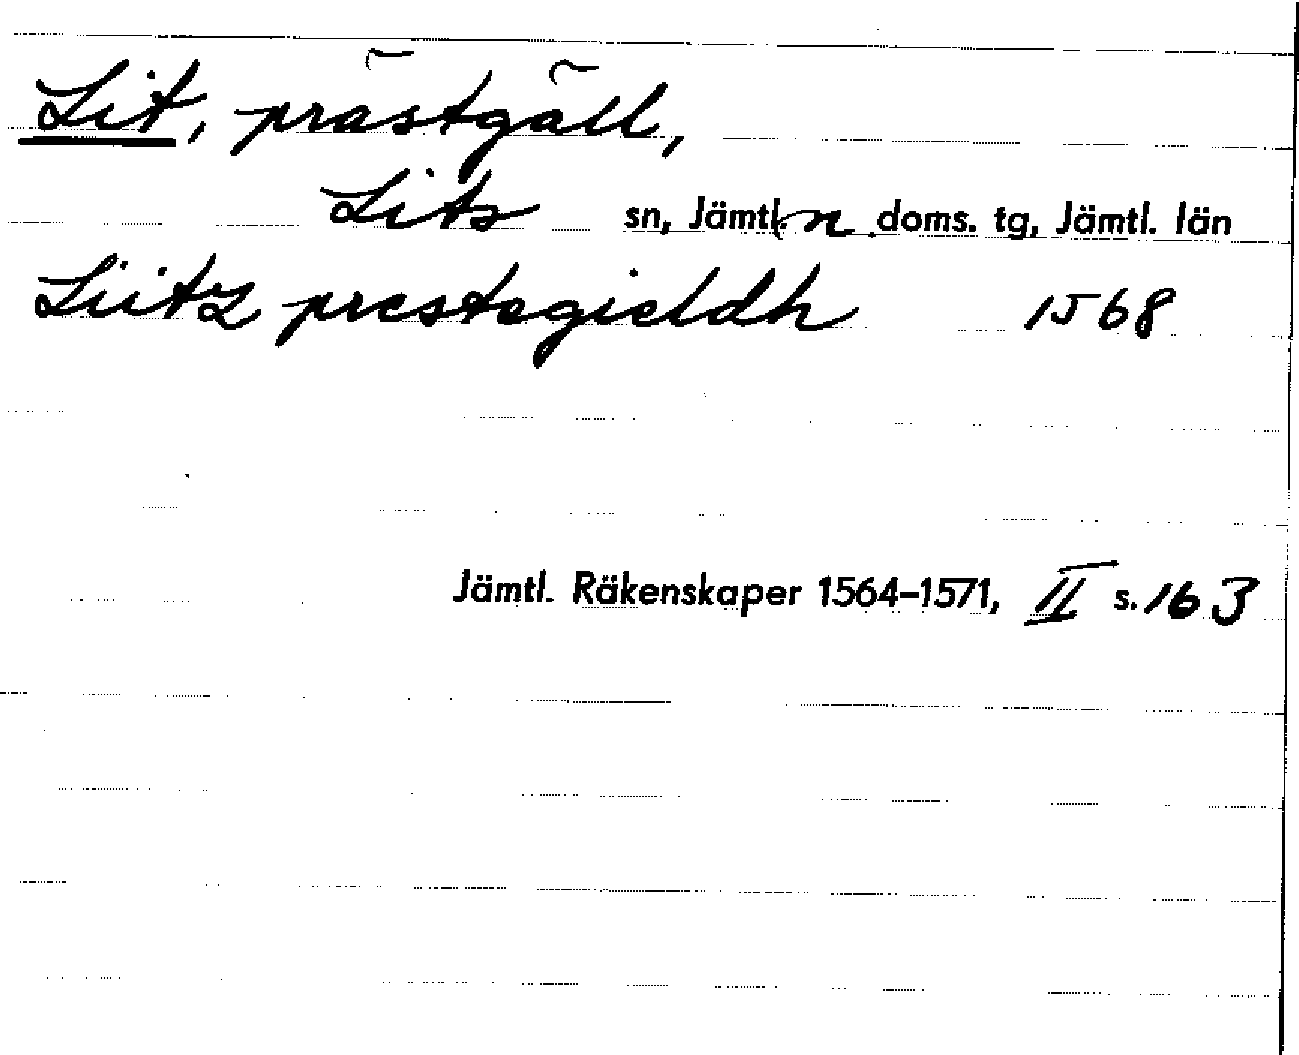 Lit, prästgäll,
Lits sn, Jämtl. n doms. tg, Jämtl. län
Liitz prestegieldh 1568
Jämtl. Räkenskaper 1564–1571, II s. 163